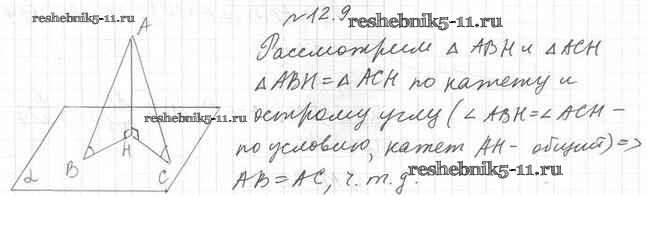 №12.9
reshebnik5-11.ru
reshebnik5-11.ru
A
Рассмотрим △ ABH и △ ACH
△ ABH = △ ACH по катету и
острому углу (∠ ABH = ∠ ACH –
reshebnik5-11.ru
по условию, катет AH - общий) =>
B H C
α
reshebnik5-11.ru
AB = AC, ч.т.д.